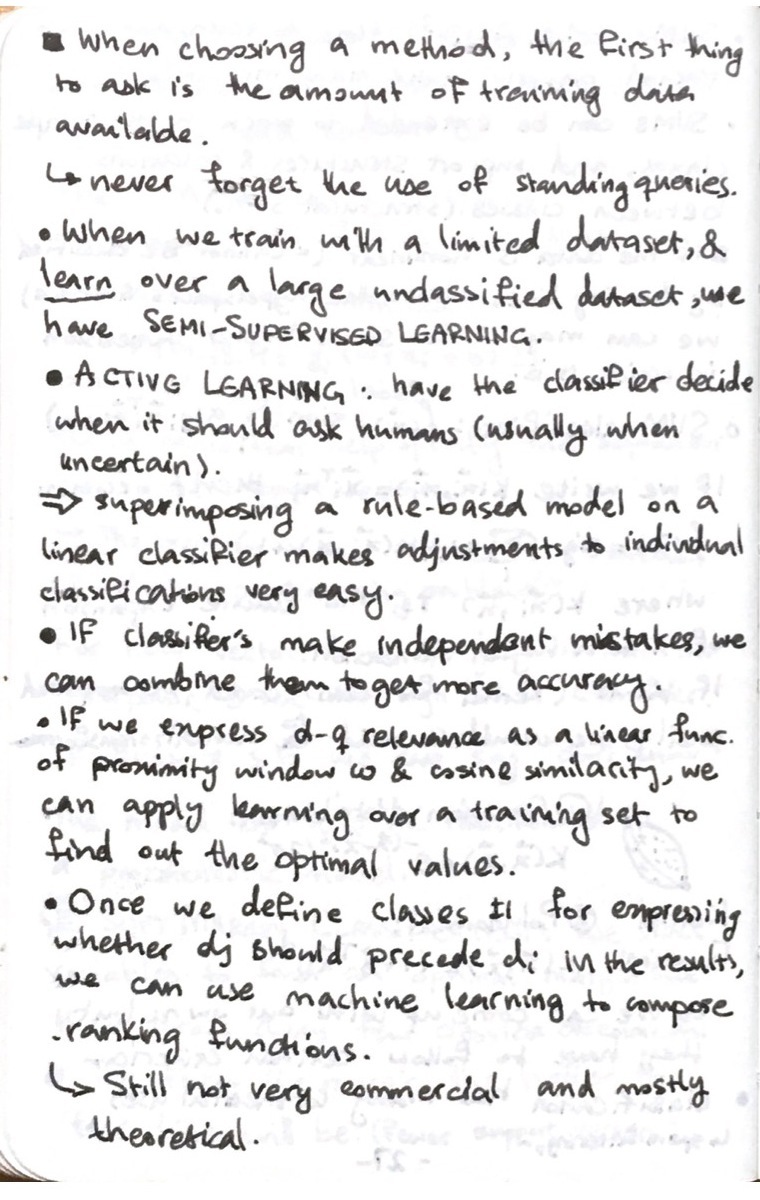 ■ When choosing a method, the first thing
to ask is the amount of training data
available.
↳ never forget the use of standing queries.
• When we train with a limited dataset, &
learn over a large unclassified dataset, we
have SEMI-SUPERVISED LEARNING.
• ACTIVE LEARNING. have the classifier decide
when it should ask humans (usually when
uncertain).
⇒ superimposing a rule-based model on a
linear classifier makes adjustments to individual
classifications very easy.
• IF classifier's make independent mistakes, we
can combine them to get more accuracy
• IF we express d-q relevance as a linear func.
of proximity window ω & cosine similarity, we
can apply learning over a training set to
find out the optimal values.
• Once we define classes ±1 for expressing
whether dj should precede di in the results,
we can use machine learning to compose
ranking functions.
↳ Still not very commercial and mostly
theoretical.